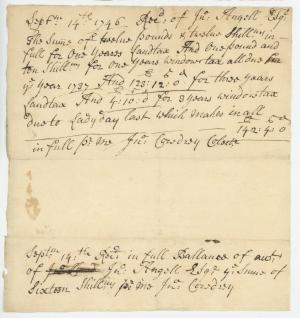 Septm 14:th 1746. Recd: of Jno: Angell Esqr
The Sume of twelve pounds & twelve Shillins in
full for One Yeares Landtax And One pound and
ten Shillins for One Years window tax all due for
ye Year 1737 And 128:12:0 for three years
Landtax And 4:10:0 for 3 Years window tax
due to Lady day last which makes in all
142:4:0
in full pr me Jno: Cordrey Colectr
Septm 14:th Recd: in full Ballance of
of Jno: Angell Esqr ye Sume of
Sixteen Shillins pr me Jno: Cordrey